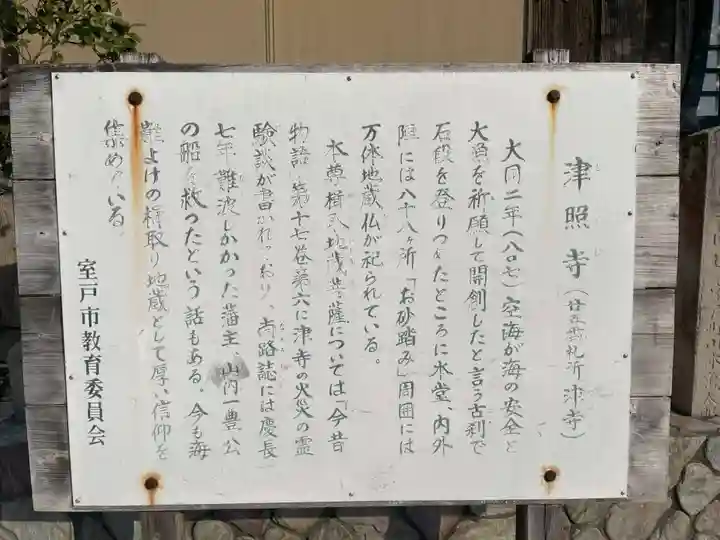 津照寺（廿五番札所 津寺）
大同二年（八〇七）空海が海の安全と
大漁を祈願して開創したと言う古刹で
石段を登りつめたところに本堂、内外
陣には八十八ヶ所「お砂踏み」周囲には
万体地蔵仏が祀られている。
本尊楫取地蔵菩薩については「今昔
物語」第十七巻第六に津寺の火災の霊
験談が書かれており、南路誌には慶長
七年難波しかかった藩主、山内一豊公
の船を救ったという話もある。今も海
難よけの楫取り地蔵として厚い信仰を
集めている。
室戸市教育委員会